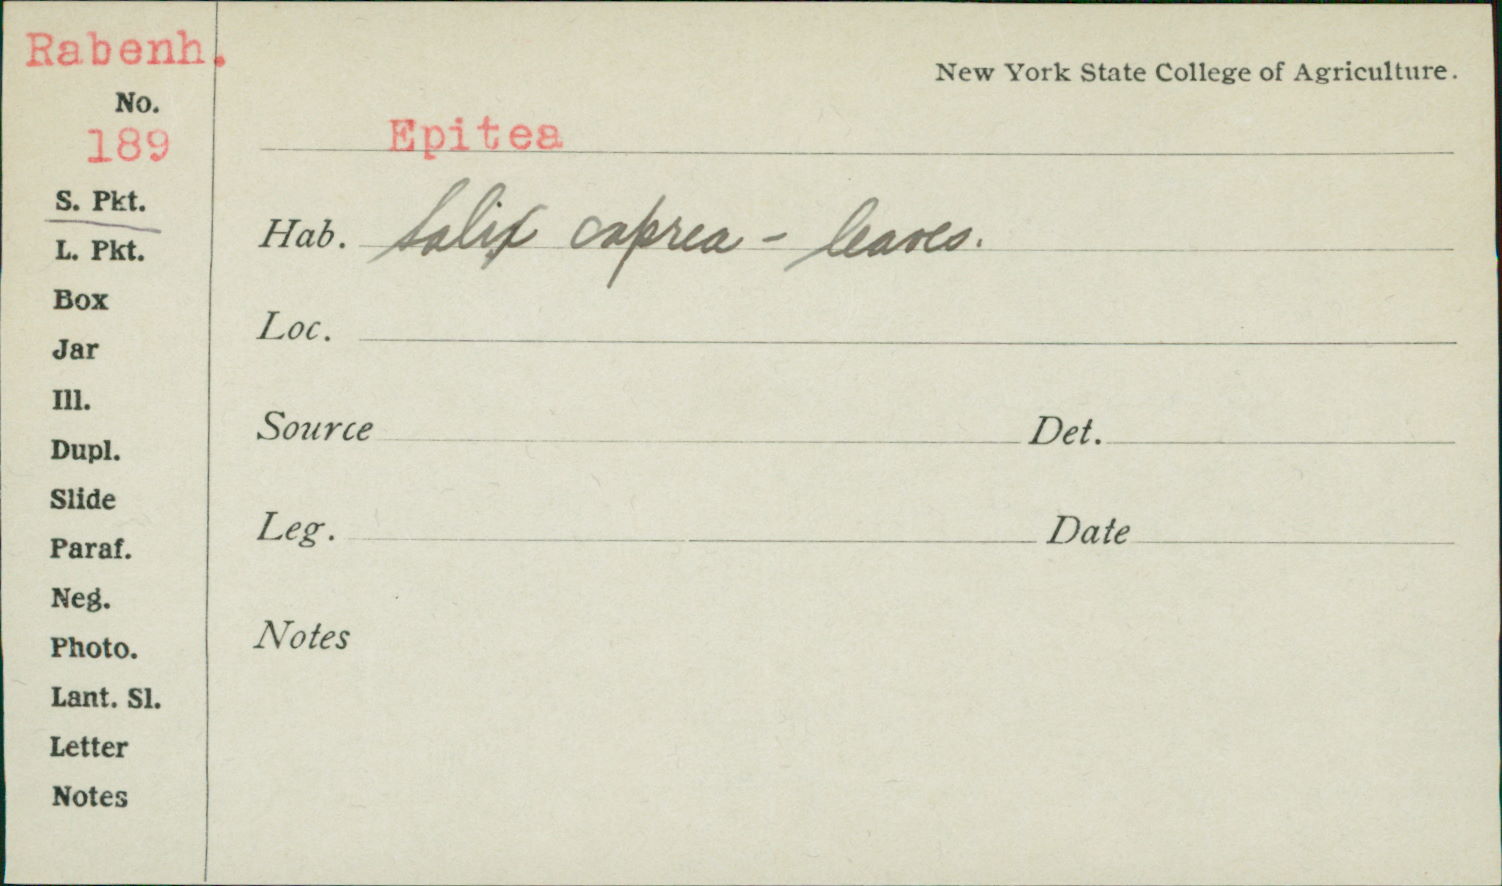 Rabenh.
No.
189
S. Pkt.
L. Pkt.
Box
Jar
Ill.
Dupl.
Slide
Paraf.
Neg.
Photo.
Lant. Sl.
Letter
Notes
New York State College of Agriculture.
Epitea
Hab. Salix caprea - leaves.
Loc.
Source Det.
Leg. Date
Notes